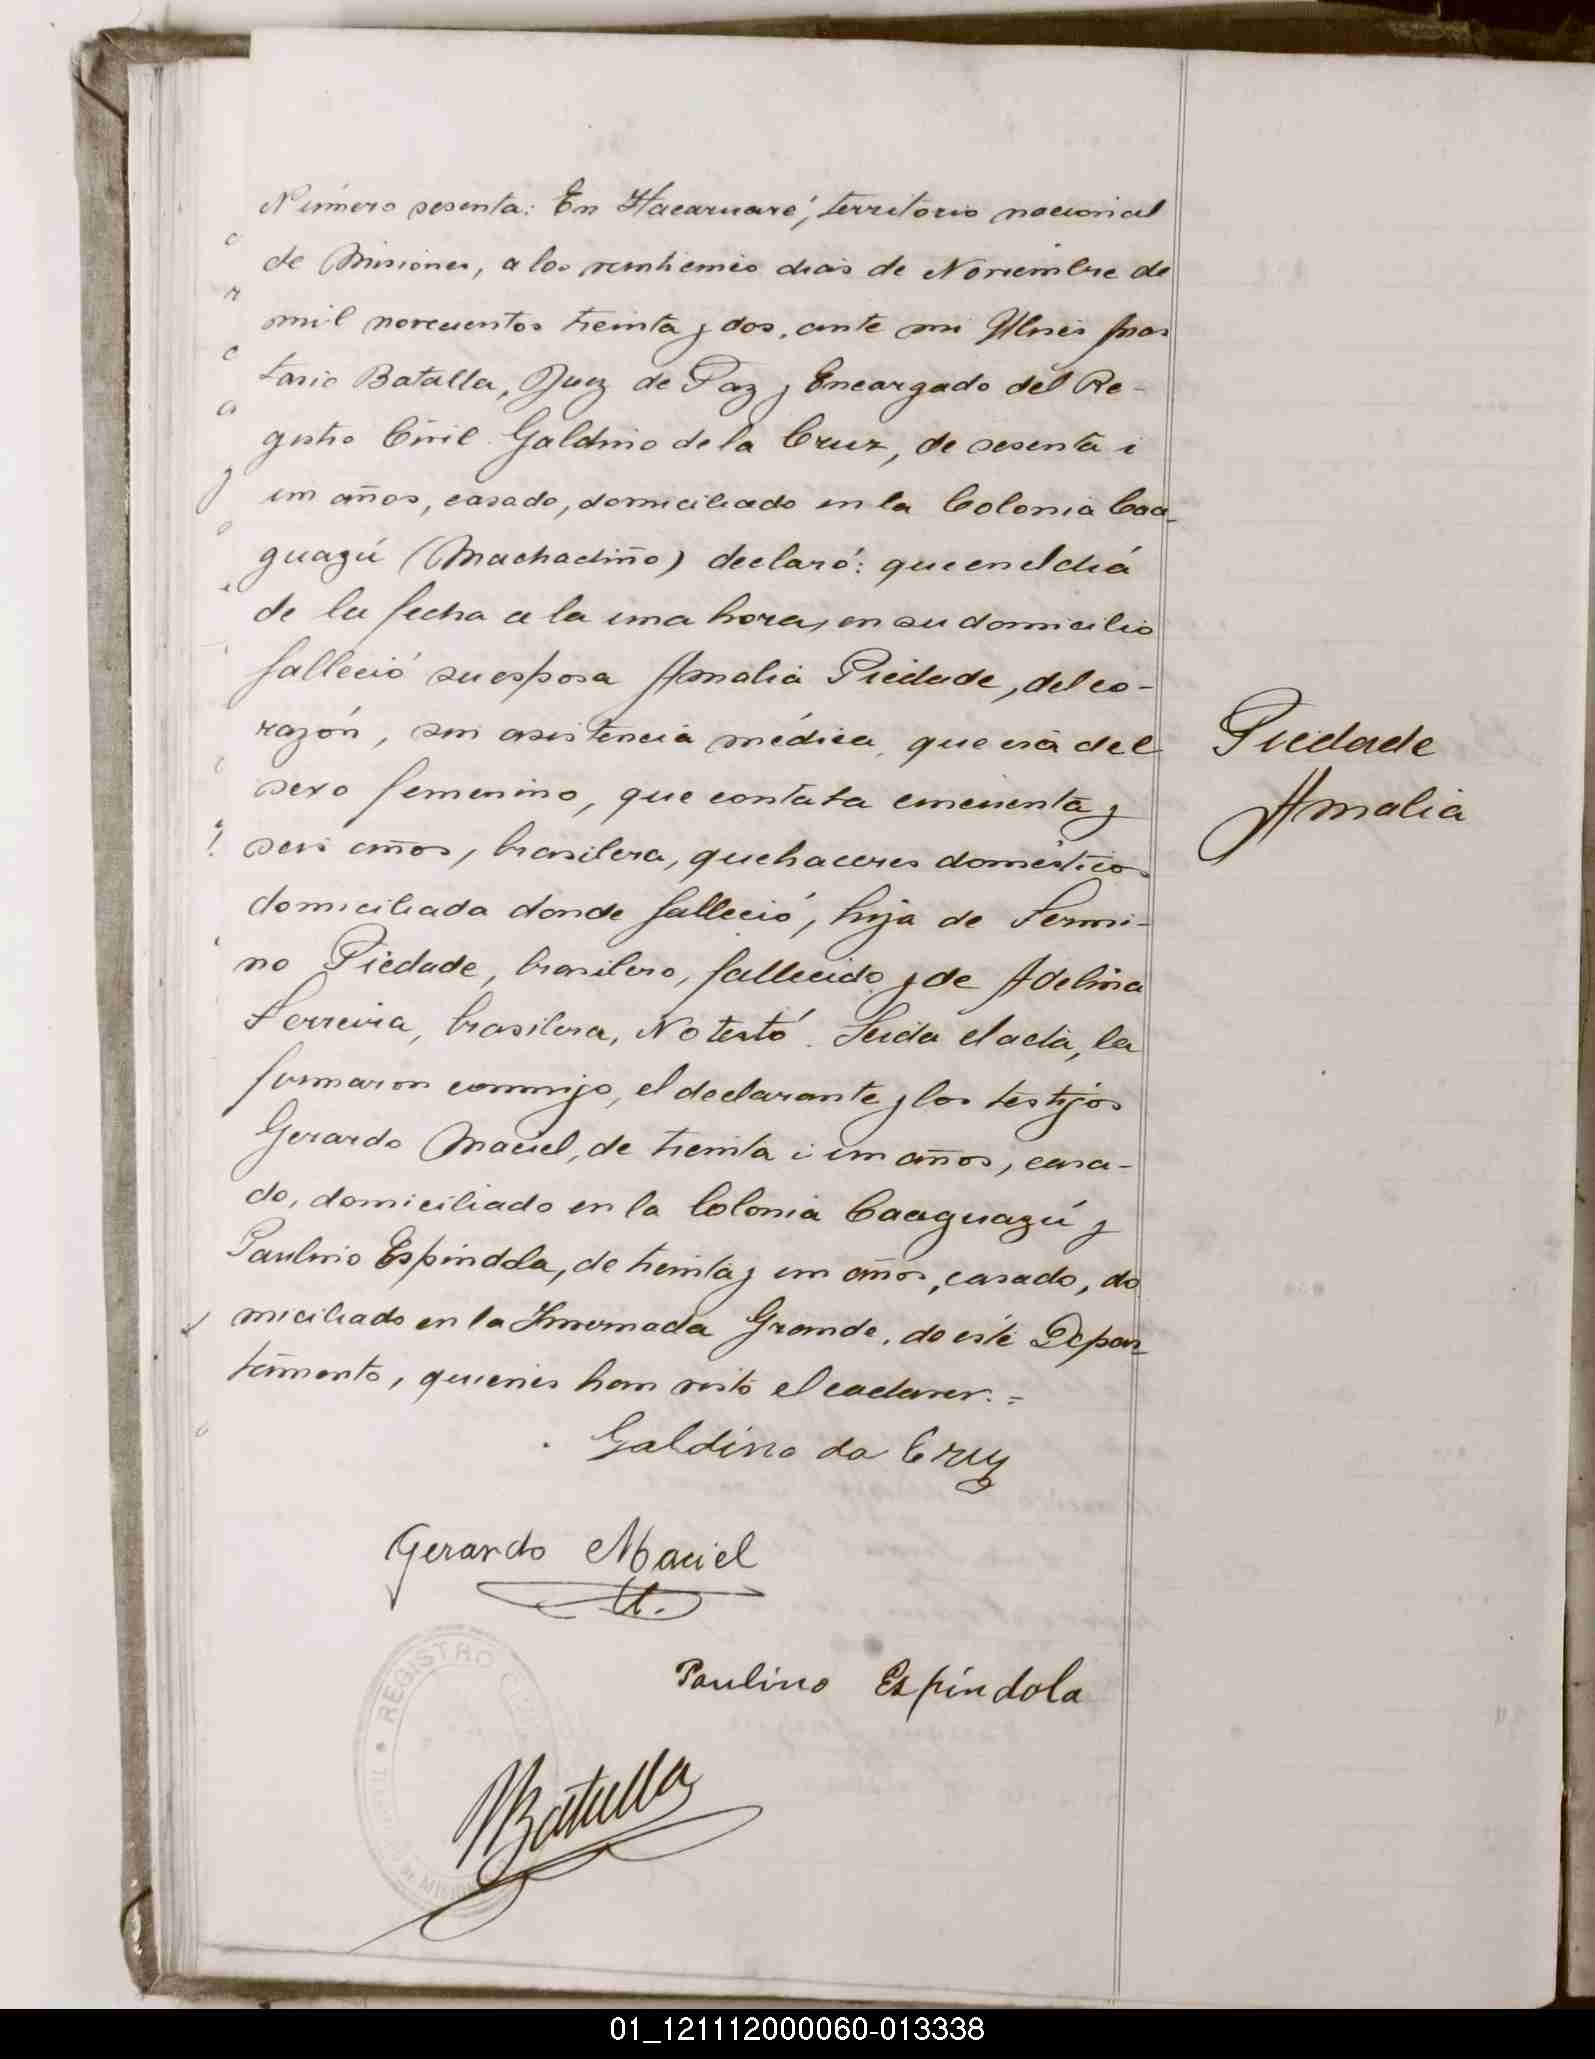 Número sesenta: En Itacaruaré, territorio nacional
de Misiones, a los veintiseis dias de Noviembre de
mil novecientos treinta y dos, ante mi Ulises
Batalla, Juez de Paz y Encargado del Re-
gistro Civil Galdino de la Cruz, de sesenta i
un años, casado, domiciliado en la Colonia Caa-
guazú (Machadiño) declaró: que en el diá
de la fecha a la una hora, en su domicilio
falleció su esposa Amalia Piedade, del co-
razón, sin asistencia médica, que era del
sexo femenino, que contaba cincuenta y
seis años, brasilera, quehaceres domésticos
domiciliada donde falleció, hija de Fermi-
no Piedade, brasilero, fallecido y de Adelina
Ferreira, brasilera, No testó. Leida el acta, la
firmaron conmigo, el declarante y los testigos
Gerardo Maciel, de treinta i un años, casa-
do, domiciliado en la Colonia Caaguazú y
Paulino Espíndola, de treinta y un años, casado, do
miciliado en la Invernada Grande, de este Depar-
tamento, quienes han visto el cadaver.=
Piedade
Amalia
Galdino da Cruz
Gerardo Maciel
Paulino Espíndola
REGISTRO
Batalla
01_121112000060-013338